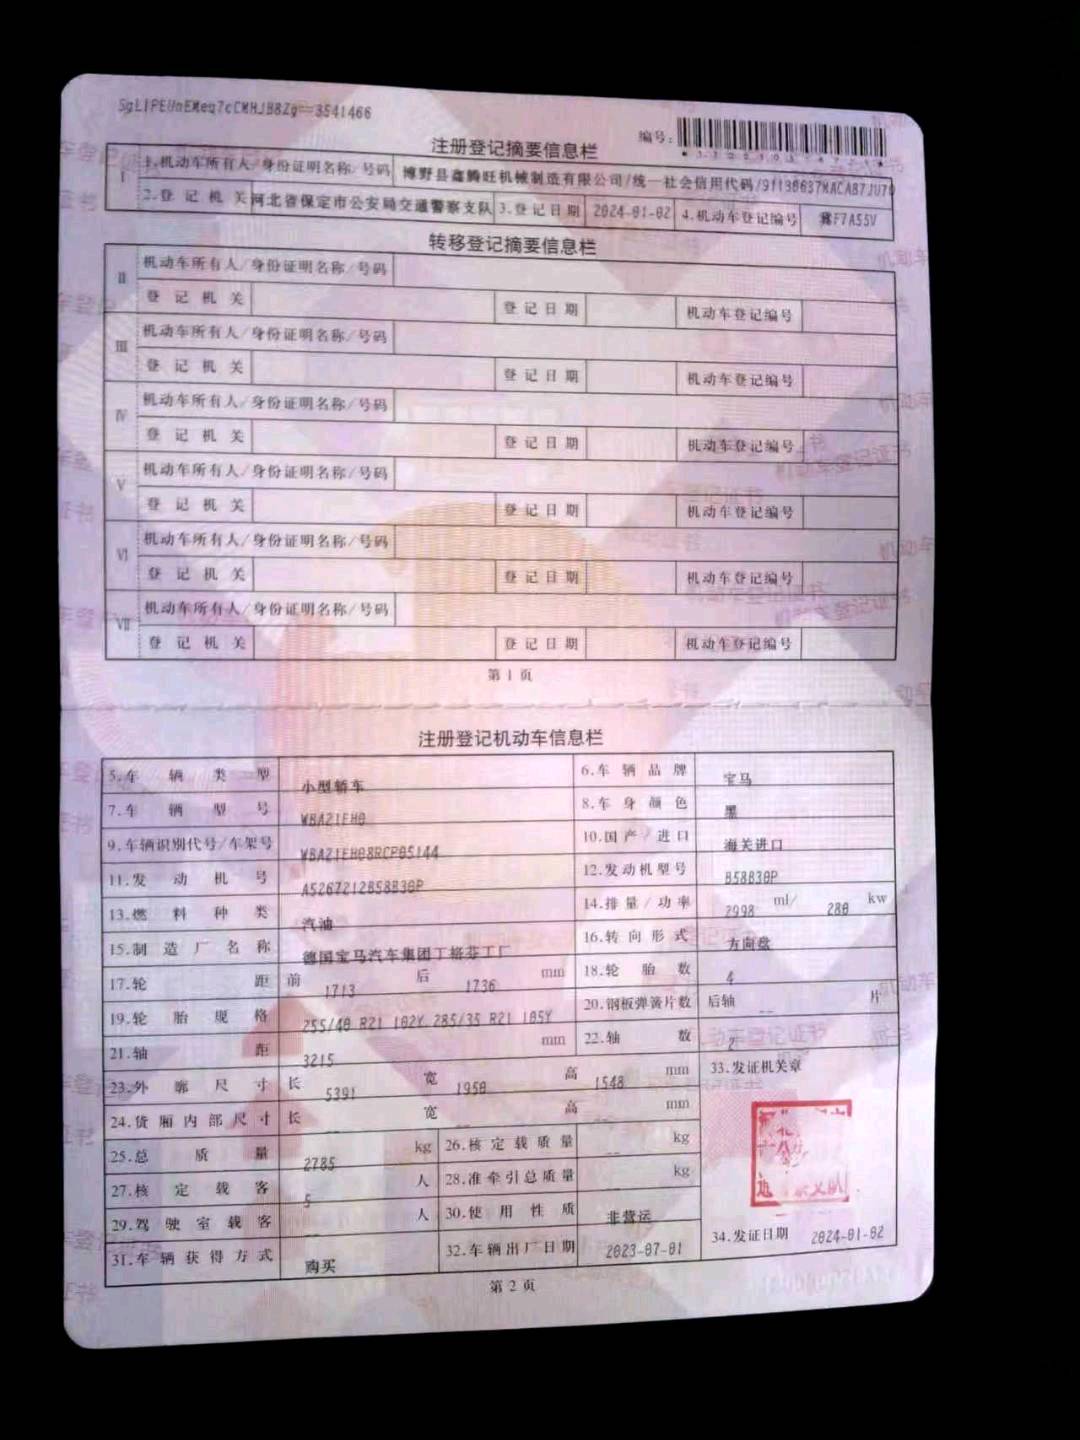 SgLIPEUnEMeq7cCMHJB8Zg==3541466
编号:
注册登记摘要信息栏
I 1.机动车所有人/身份证明名称/号码 博野县鑫腾旺机械制造有限公司/统一社会信用代码/91130637MACAB7JU70
2.登记机关 河北省保定市公安局交通警察支队 3.登记日期 2024-01-02 4.机动车登记编号 冀F7A55V
转移登记摘要信息栏
II 机动车所有人/身份证明名称/号码
登记机关 登记日期 机动车登记编号
III 机动车所有人/身份证明名称/号码
登记机关 登记日期 机动车登记编号
IV 机动车所有人/身份证明名称/号码
登记机关 登记日期 机动车登记编号
V 机动车所有人/身份证明名称/号码
登记机关 登记日期 机动车登记编号
VI 机动车所有人/身份证明名称/号码
登记机关 登记日期 机动车登记编号
VII 机动车所有人/身份证明名称/号码
登记机关 登记日期 机动车登记编号
第 1 页
注册登记机动车信息栏
5.车辆类型 小型轿车 6.车辆品牌 宝马
7.车辆型号 WBA21EH0 8.车身颜色 黑
9.车辆识别代号/车架号 WBA21EH08RCP05144 10.国产/进口 海关进口
11.发动机号 A5267212B58B30P 12.发动机型号 B58B30P
13.燃料种类 汽油 14.排量/功率 2998 ml/ 280 kw
15.制造厂名称 德国宝马汽车集团丁格芬工厂 16.转向形式 方向盘
17.轮距 前 1713 后 1736 mm 18.轮胎数 4
19.轮胎规格 255/40 R21 102Y,285/35 R21 105Y 20.钢板弹簧片数 后轴 -- 片
21.轴距 3215 mm 22.轴数 2
23.外廓尺寸 长 5391 宽 1950 高 1548 mm 33.发证机关章
24.货厢内部尺寸 长 -- 宽 -- 高 -- mm
25.总质量 2785 kg 26.核定载质量 -- kg
27.核定载客 5 人 28.准牵引总质量 -- kg
29.驾驶室载客 -- 人 30.使用性质 非营运
31.车辆获得方式 购买 32.车辆出厂日期 2023-07-01 34.发证日期 2024-01-02
第 2 页